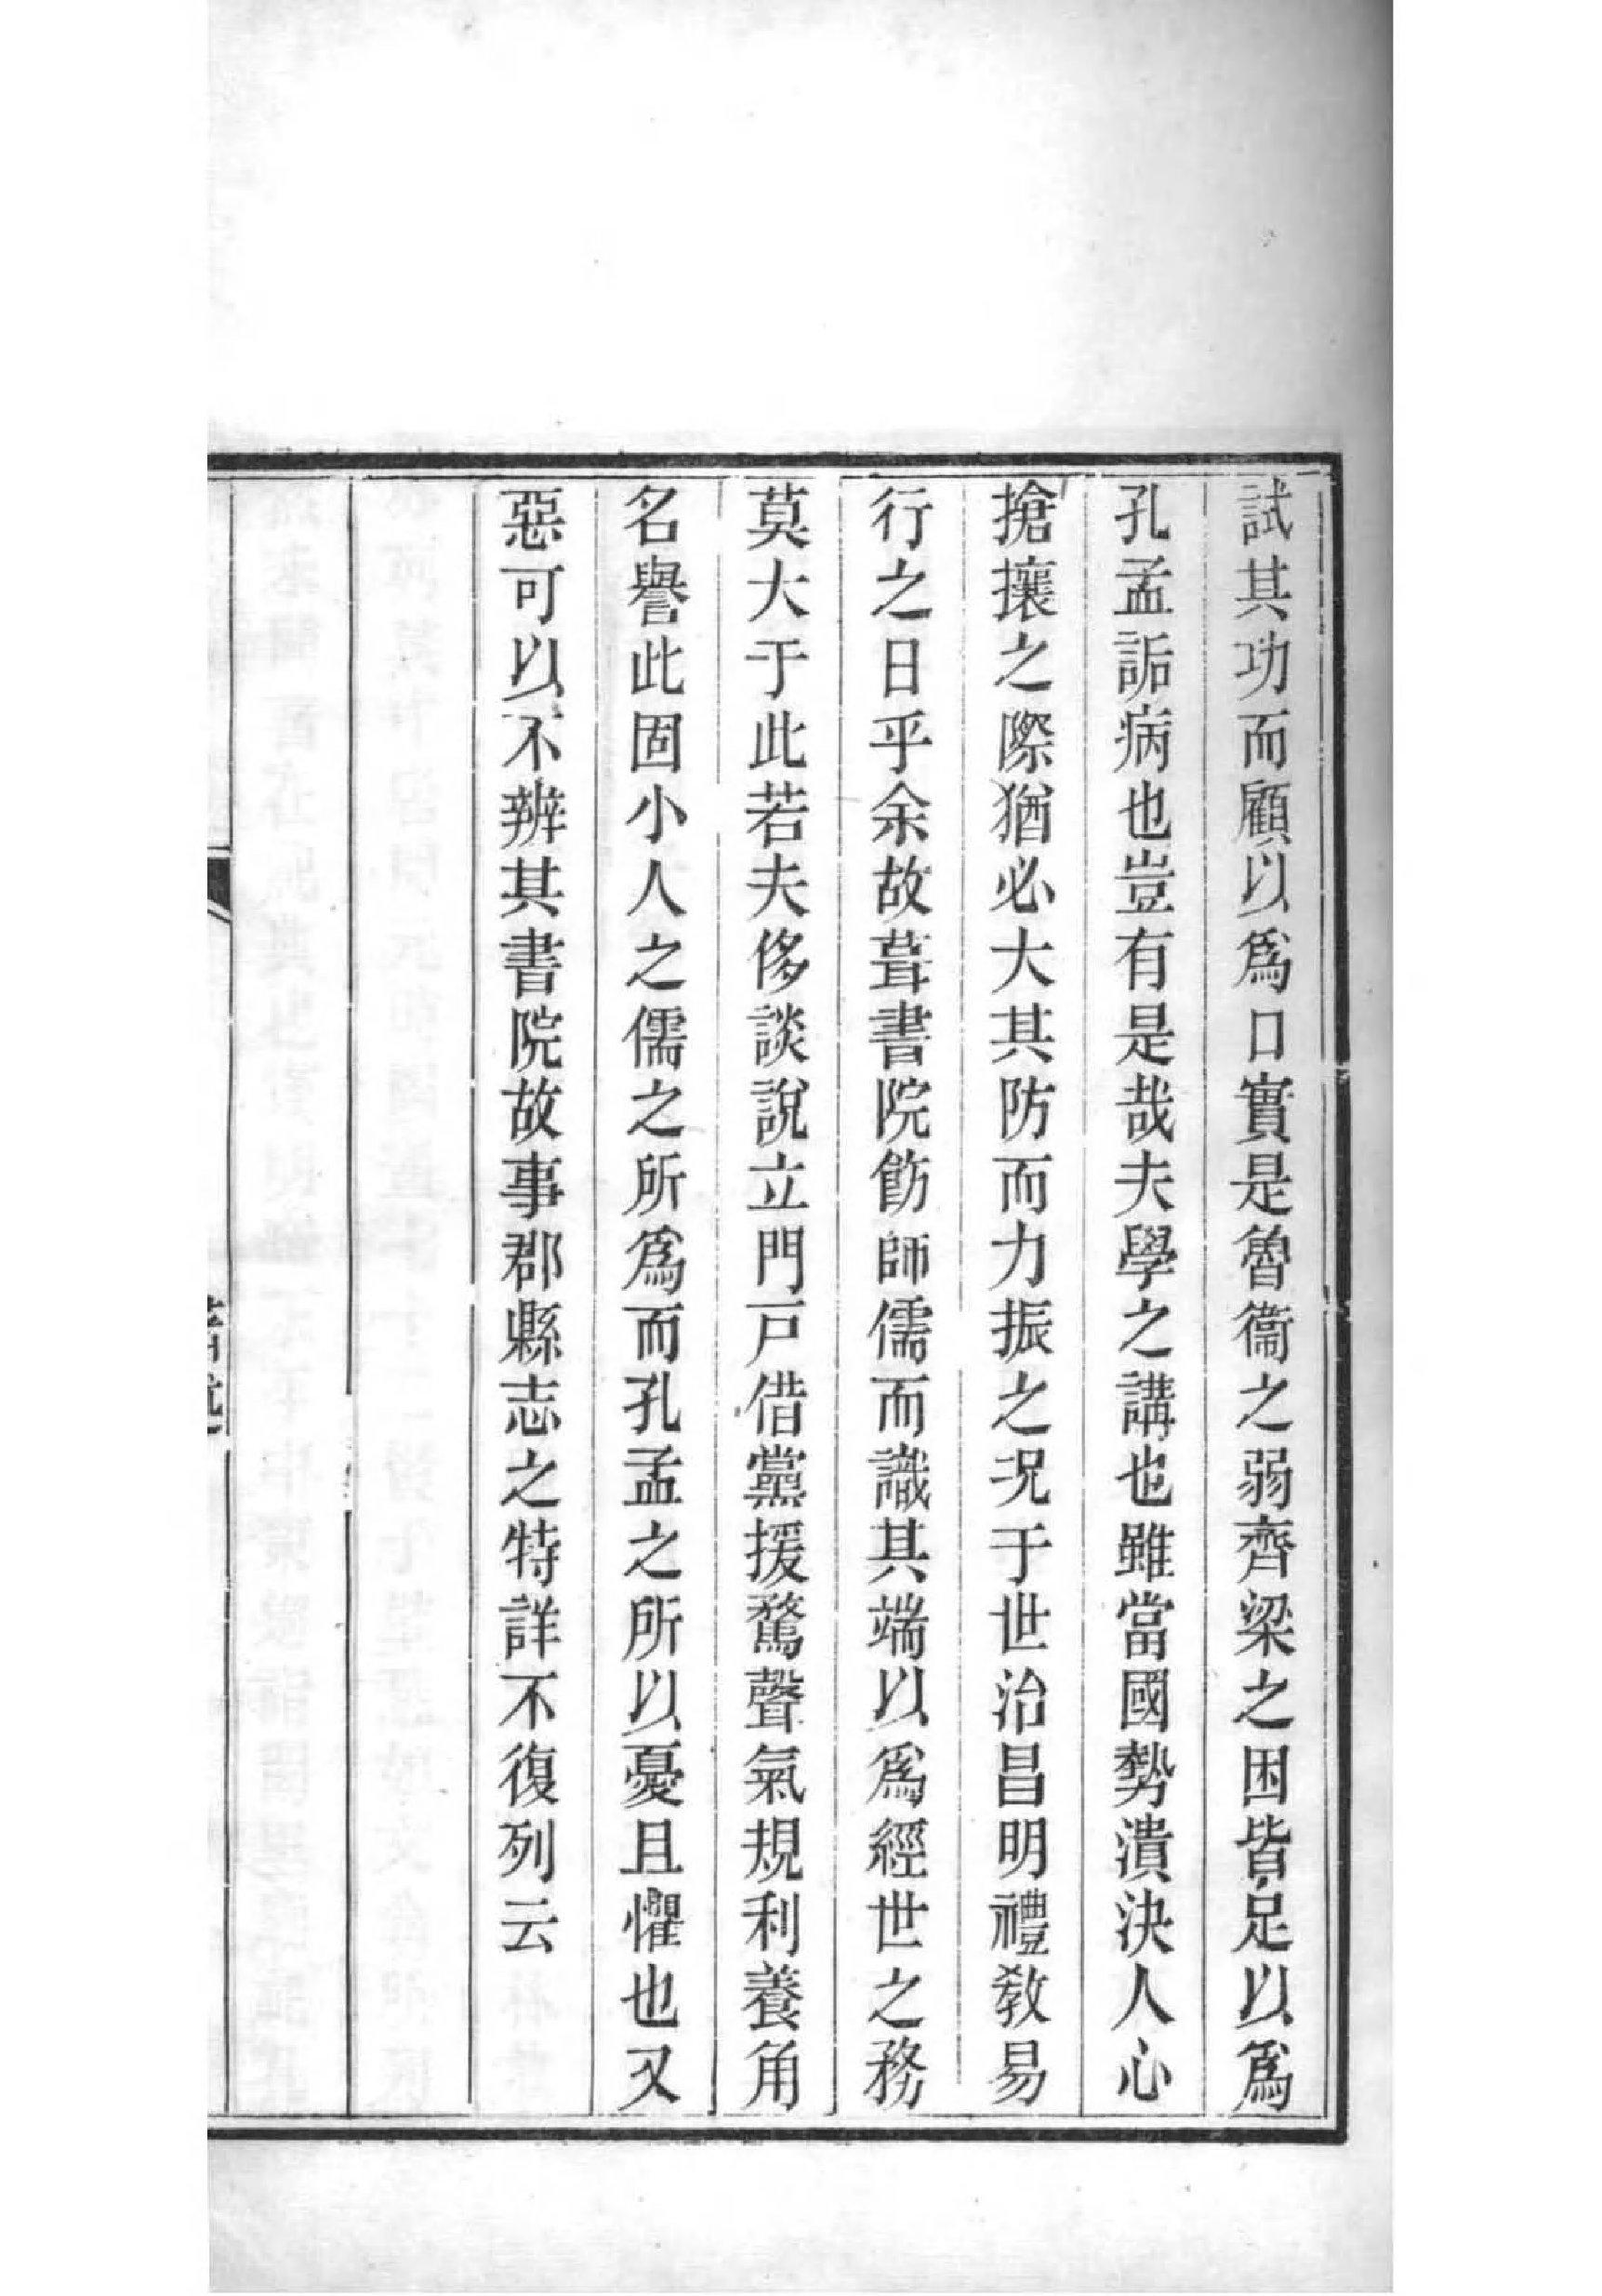 試其功而顧以爲口實是魯衞之弱齊梁之困皆足以爲
孔孟詬病也豈有是哉夫學之講也雖當國勢潰決人心
搶攘之際猶必大其防而力振之况于世治昌明禮敎易
行之日乎余故葺書院飭師儒而識其端以爲經世之務
莫大于此若夫侈談說立門戸借黨援騖聲氣規利養角
名譽此固小人之儒之所爲而孔孟之所以憂且懼也又
惡可以不辨其書院故事郡縣志之特詳不復列云